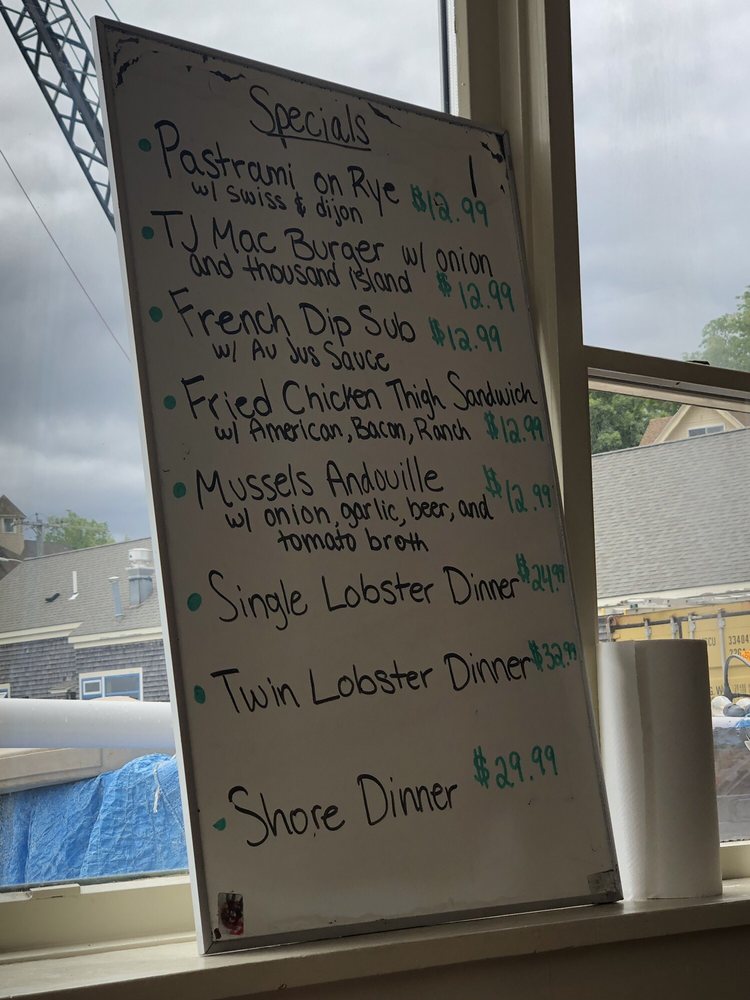 Specials
• Pastrami on Rye $12.99
w/ Swiss & dijon
• TJ Mac Burger w/ onion
and thousand island $12.99
• French Dip Sub $12.99
w/ Au Jus Sauce
• Fried Chicken Thigh Sandwich
w/ American, Bacon, Ranch $12.99
• Mussels Andouille $12.99
w/ onion, garlic, beer, and
tomato broth
• Single Lobster Dinner $24.99
• Twin Lobster Dinner $32.99
• Shore Dinner $29.99